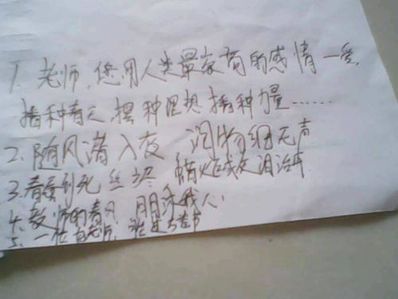 1. 老师,您用人类最崇高的感情一爱,
播种春天,播种理想,播种力量……
2. 随风潜入夜 润物细无声
3. 春蚕到死丝 蜡炬成灰泪
4. 教师的春风, 日日
5. 一位好老师,